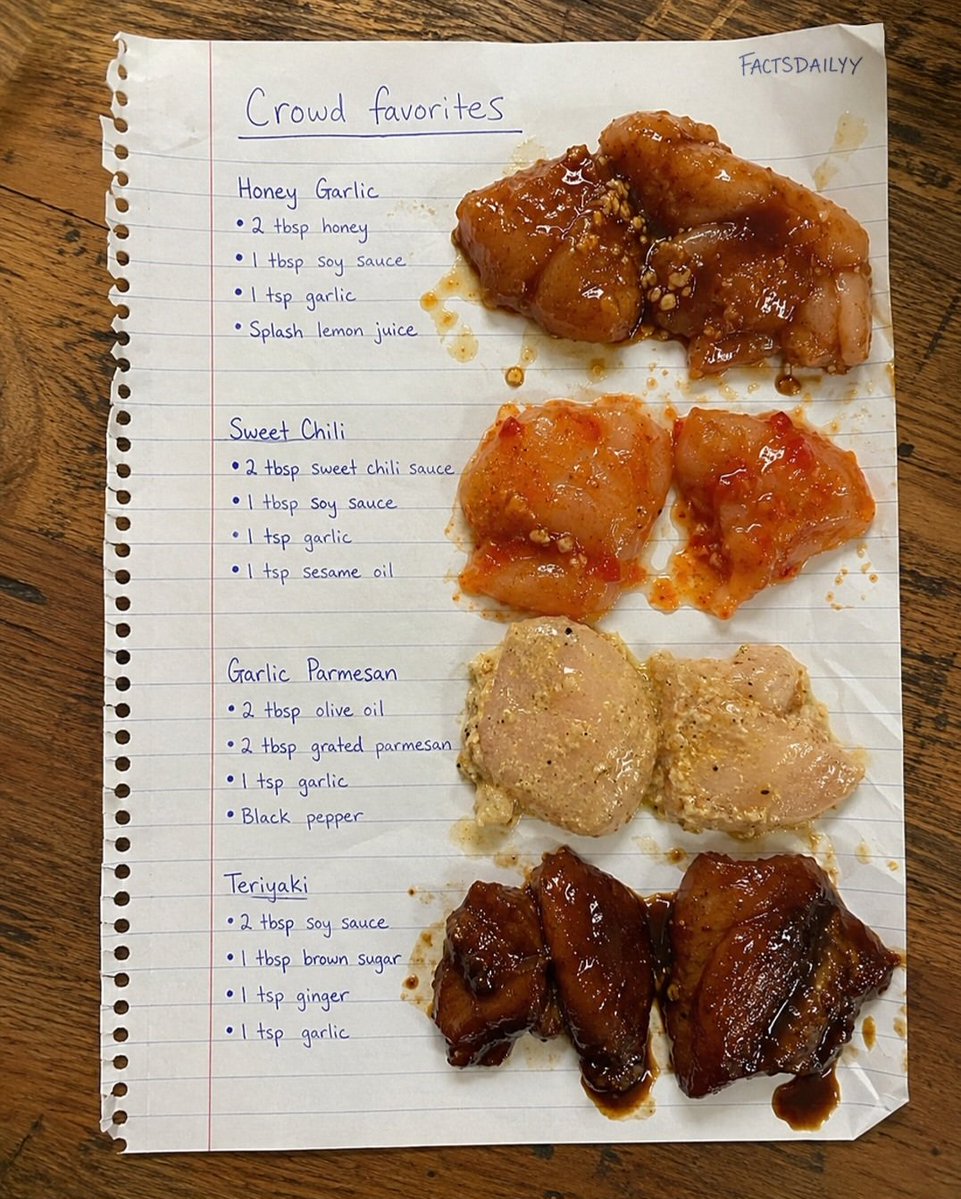 FACTSDAILYY
Crowd favorites
Honey Garlic
• 2 tbsp honey
• 1 tbsp soy sauce
• 1 tsp garlic
• Splash lemon juice
Sweet Chili
• 2 tbsp sweet chili sauce
• 1 tbsp soy sauce
• 1 tsp garlic
• 1 tsp sesame oil
Garlic Parmesan
• 2 tbsp olive oil
• 2 tbsp grated parmesan
• 1 tsp garlic
• Black pepper
Teriyaki
• 2 tbsp soy sauce
• 1 tbsp brown sugar
• 1 tsp ginger
• 1 tsp garlic